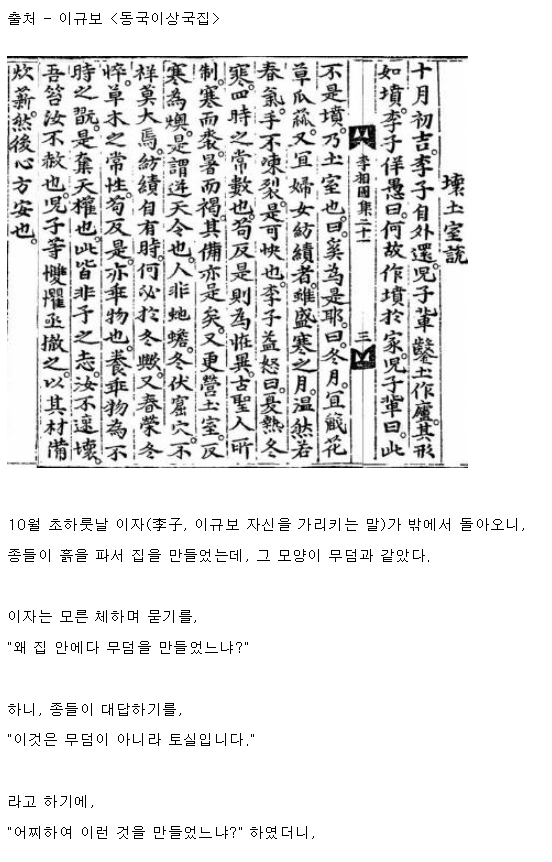 출처 - 이규보 <동국이상국집>
壞土室說
十月初吉。李子自外還。兒子輩鑿土作廬。其形
如墳。李子佯愚曰。何故作墳於家。兒子輩曰。此
李相國集二十一 三
不是墳。乃土室也。曰。奚爲是耶。曰。冬月。宜藏花
草瓜蓏。又宜婦女紡績者。雖盛寒之月。溫然若
春氣。手不凍裂。是可快也。李子益怒曰。夏熱冬
寒。四時之常數也。苟反是則爲恠異。古聖人所
制。寒而裘。暑而褐。其備亦足矣。又更營土室。反
寒爲燠。是謂逆天令也。人非虵蟾。冬伏窟穴。不
祥莫大焉。紡績自有時。何必於冬歟。又春榮冬
悴。草木之常性。苟反是。亦乖物也。養乖物爲不
時之翫。是奪天權也。此皆非予之志。汝不速壞。
吾笞汝不赦也。兒子等懼亟撤之。以其材備
炊薪。然後心方安也。
10월 초하룻날 이자(李子, 이규보 자신을 가리키는 말)가 밖에서 돌아오니,
종들이 흙을 파서 집을 만들었는데, 그 모양이 무덤과 같았다.
이자는 모른 체하며 묻기를,
"왜 집 안에다 무덤을 만들었느냐?"
하니, 종들이 대답하기를,
"이것은 무덤이 아니라 토실입니다."
라고 하기에,
"어찌하여 이런 것을 만들었느냐?" 하였더니,